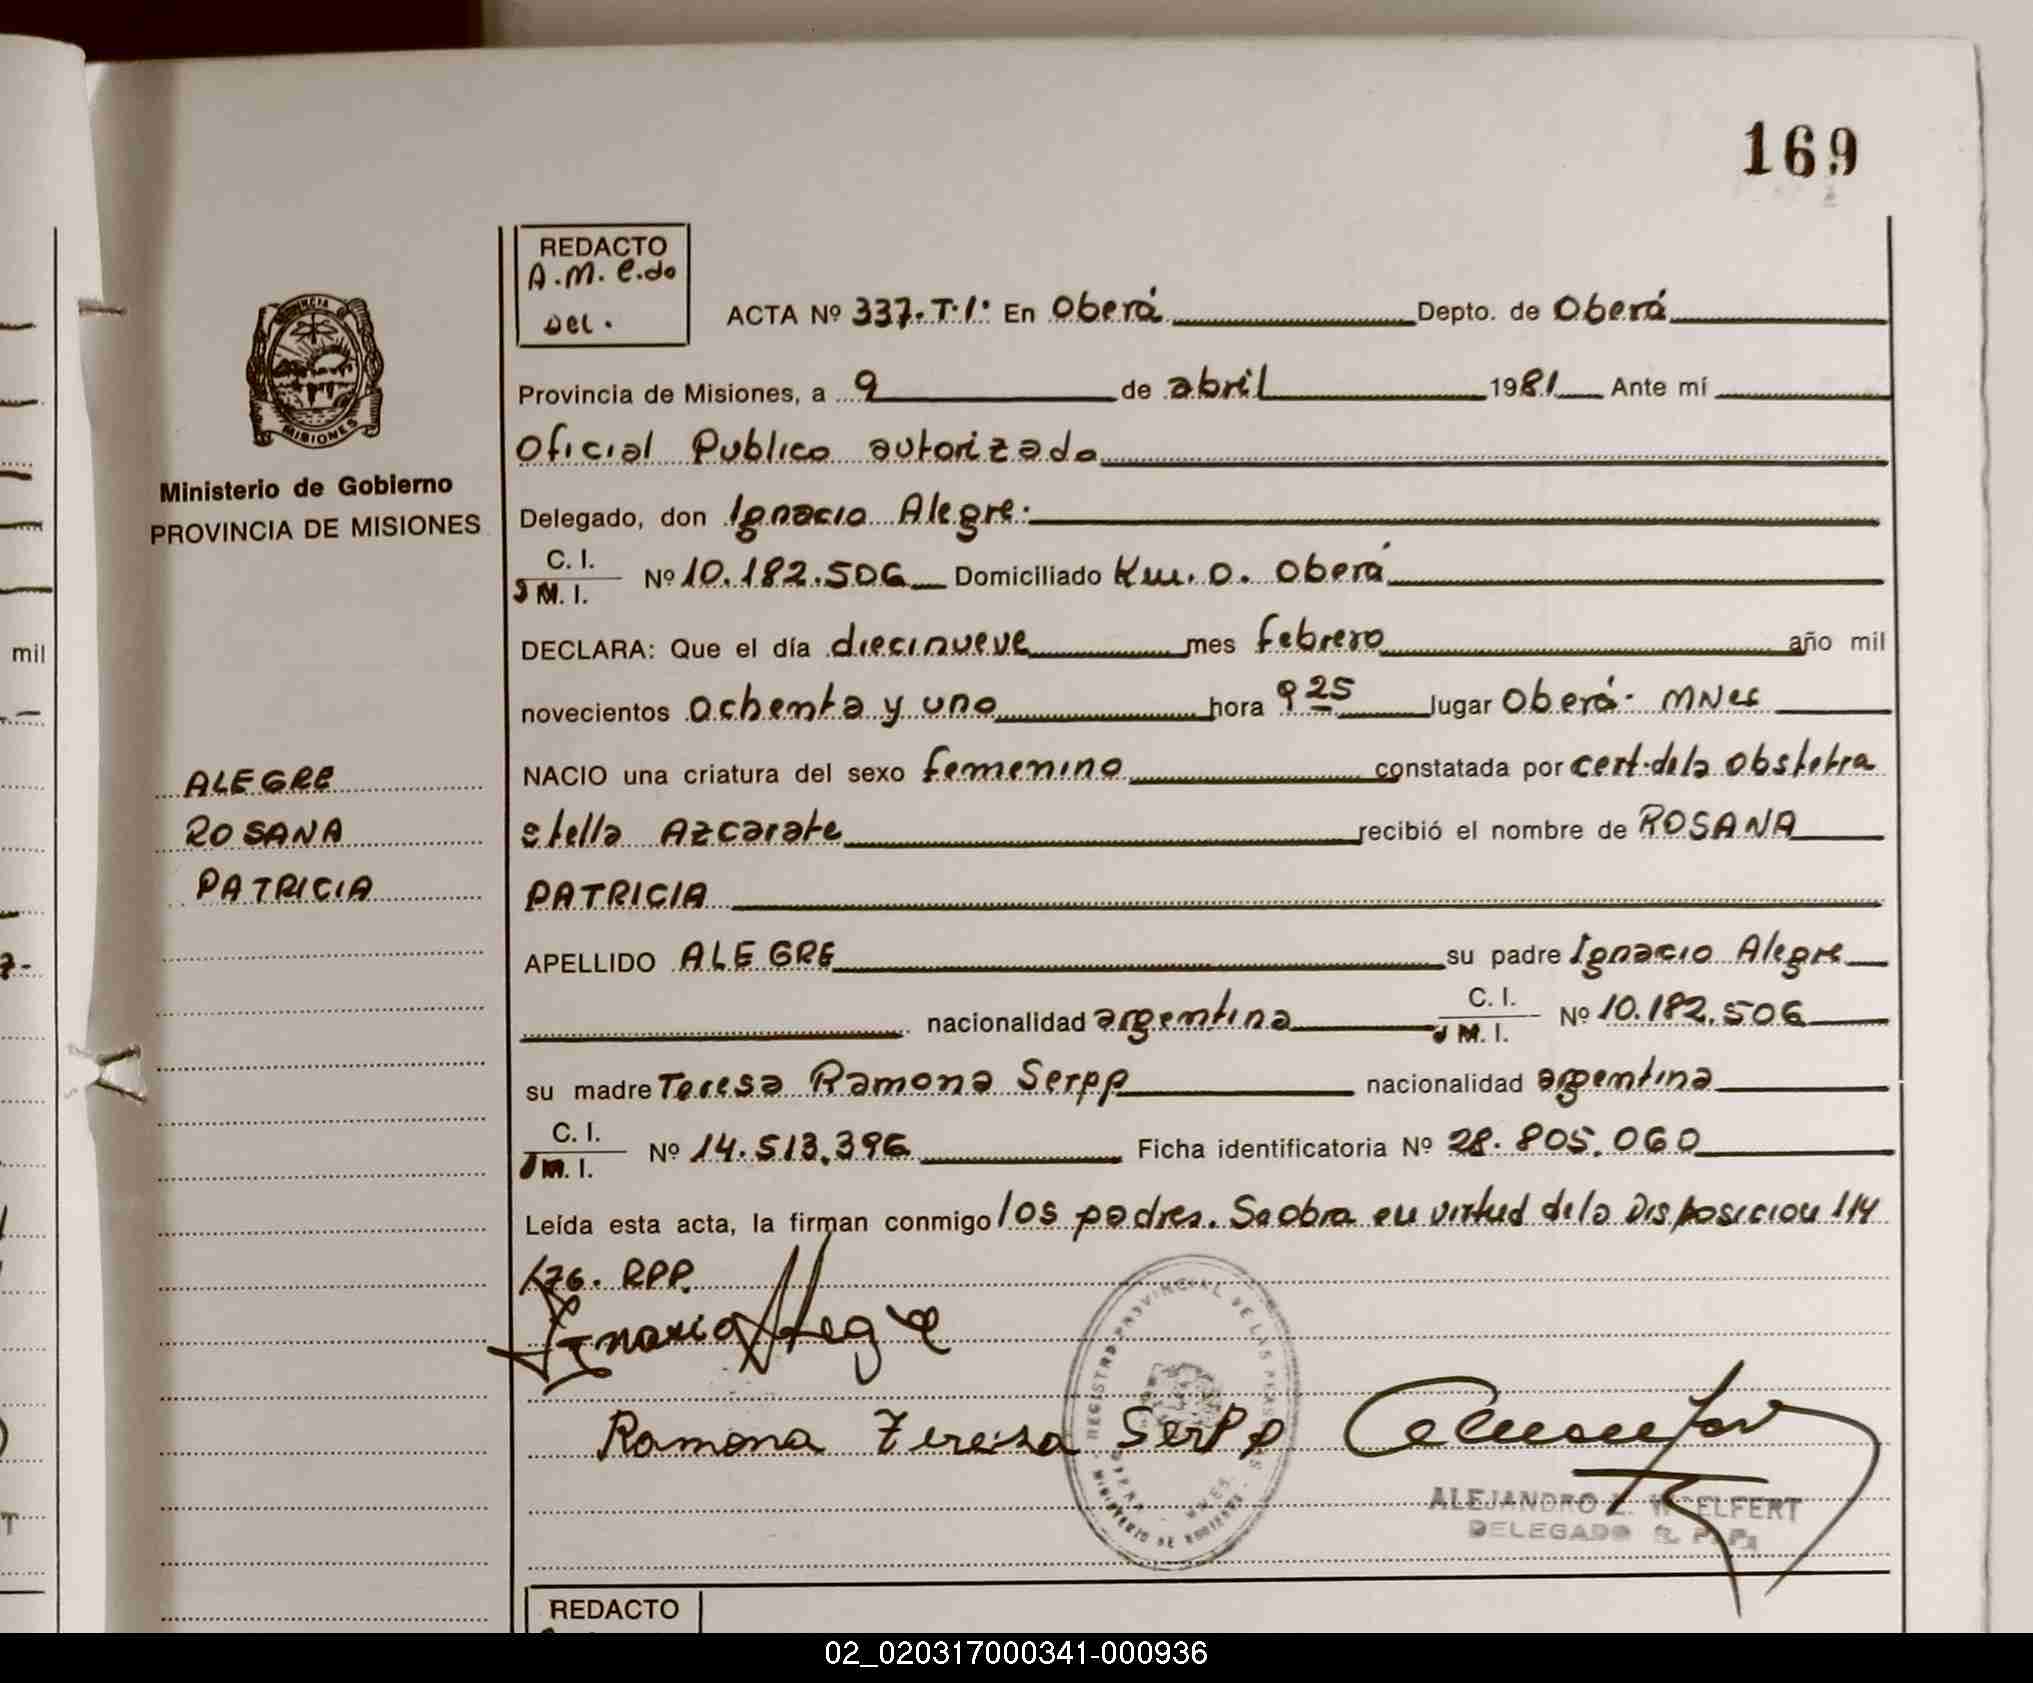 169
REDACTO
A.M. e.do
Del.
ACTA Nº 337.T.1: En Oberá Depto. de Oberá
Provincia de Misiones, a 9 de abril 1981 Ante mí
Oficial Publico autorizado
Delegado, don Ignacio Alegre.
C. I.
M. I. Nº 10.182.506 Domiciliado Km. 0. Oberá
DECLARA: Que el día diecinueve mes febrero año mil
novecientos ochenta y uno hora 9 25 lugar Oberá- MNes
NACIO una criatura del sexo femenino constatada por cert. de la obstetra
Stella Azcarate recibió el nombre de ROSANA
PATRICIA
APELLIDO ALEGRE su padre Ignacio Alegre
nacionalidad argentina C. I.
M. I. Nº 10.182.506
su madre Teresa Ramona Serpp nacionalidad argentina
C. I.
M. I. Nº 14.513.396 Ficha identificatoria Nº 28.805.060
Leída esta acta, la firman conmigo los padres. Se obra en virtud de la Disposicion 114
/76. RPP.
Ignacio Alegre
Ramona Teresa Serpp
REGISTRO PROVINCIAL DE LAS PERSONAS
MINISTERIO DE GOBIERNO
ALEJANDRO WOELFERT
DELEGADO R. P. P.
REDACTO
PROVINCIA
MISIONES
Ministerio de Gobierno
PROVINCIA DE MISIONES
ALEGRE
ROSANA
PATRICIA
mil
02_020317000341-000936